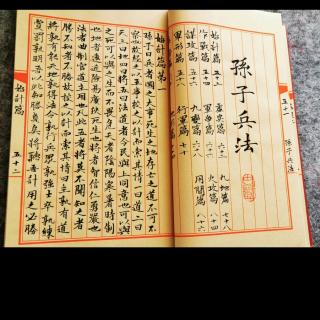 孫子兵法
始計篇
作戰篇
謀攻篇 五十六
軍形篇 五十八
軍爭篇
行軍篇 七十
九地篇 七十八
火攻篇 八十四
用間篇 八十六
孫子兵法
始計篇第一
孫子曰兵者國之大事死生之地存亡之道不可不
察也故經之以五事校之以計而索其情一曰道二曰
天三曰地四曰將五曰法道者令民與上同意也可以與
之死可以與之生而不畏危也天者陰陽寒暑時制
也地者遠近險易廣狹死生也將者智信仁勇嚴也
法者曲制官道主用也凡此五者將莫不聞知之者
勝不知者不勝故校之以計而索其情曰主孰有道
將孰有能天地孰得法令孰行兵眾孰強士卒孰練
賞罰孰明吾以此知勝負矣將聽吾計用之必勝
始計篇 五十二